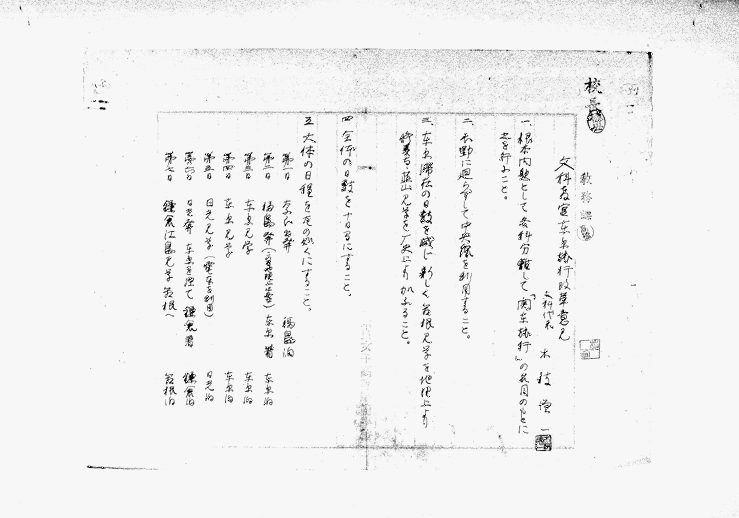 校長
教務課
文科教室東京旅行改革意見
文科代表 木枝増一
一、根本問題として各科分離して「関東旅行」の名目のもとに
之を行ふこと。
二、長野に廻らずして中央線を利用すること。
三、東京滞在の日数を減じ新しく箱根見学を地理上より
韮山見学を歴史上より加ふること。
四、全体の日数を十日にすること。
五、大体の日程を左の如くにすること。
第一日 奈良発 福島泊
第二日 福島発 東京着 東京泊
第三日 東京見学 東京泊
第四日 東京見学 東京泊
第五日 日光見学(電車を利用) 日光泊
第六日 日光発 東京を経て鎌倉着 鎌倉泊
第七日 鎌倉江島見学箱根へ 箱根泊